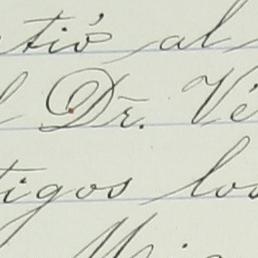 tió al
l Dr. Vé
tigos los